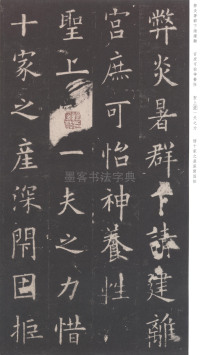 弊炎暑群下請建離
宮庶可怡神養性
聖上一夫之力惜
十家之產深閉固拒
墨客书法字典